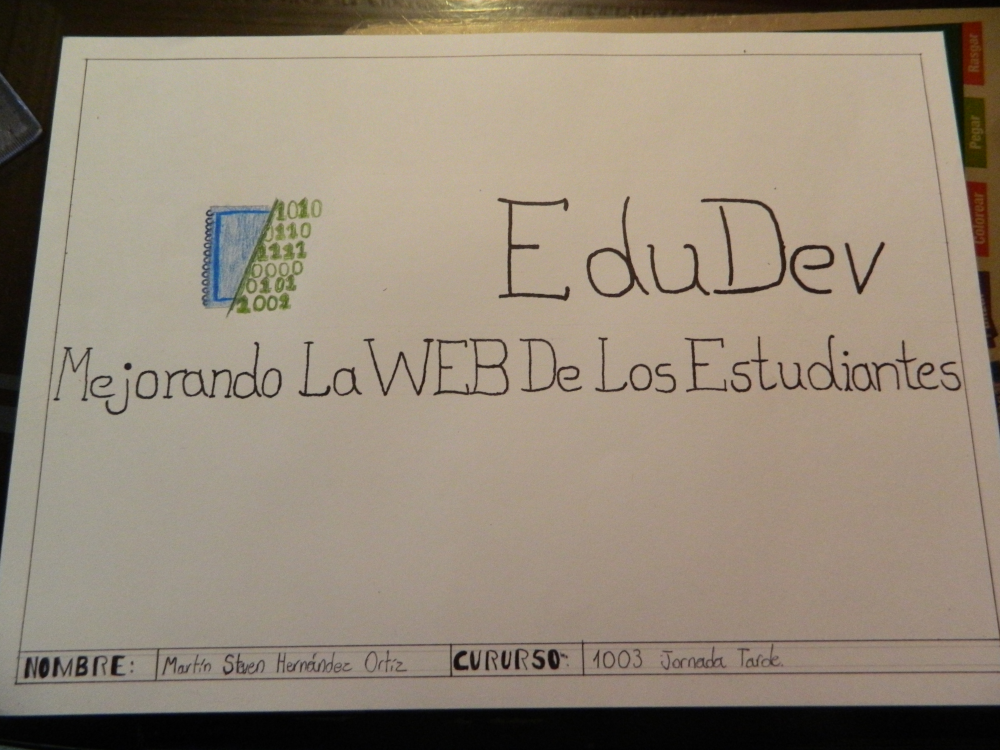 1010
0110
1111
0000
0101
1001
EduDev
Mejorando La WEB De Los Estudiantes
NOMBRE: Martín Stven Hernández Ortiz CURURSO: 1003 Jornada Tarde.
Rasgar
Pegar
Colorear